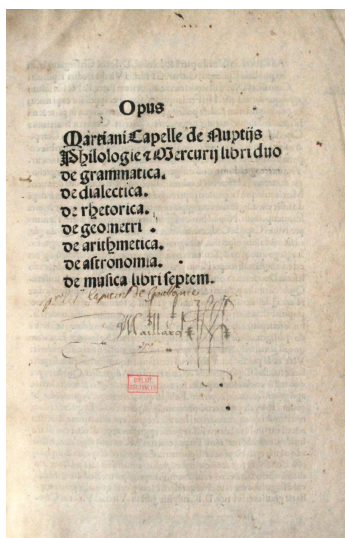 Opus
Martiani Capelle de Nuptijs
Philologie ⁊ Mercurij libri duo
de grammatica.
de dialectica.
de rhetorica.
de geometri .
de arithmetica.
de astronomia.
de musica libri septem.
Maillard